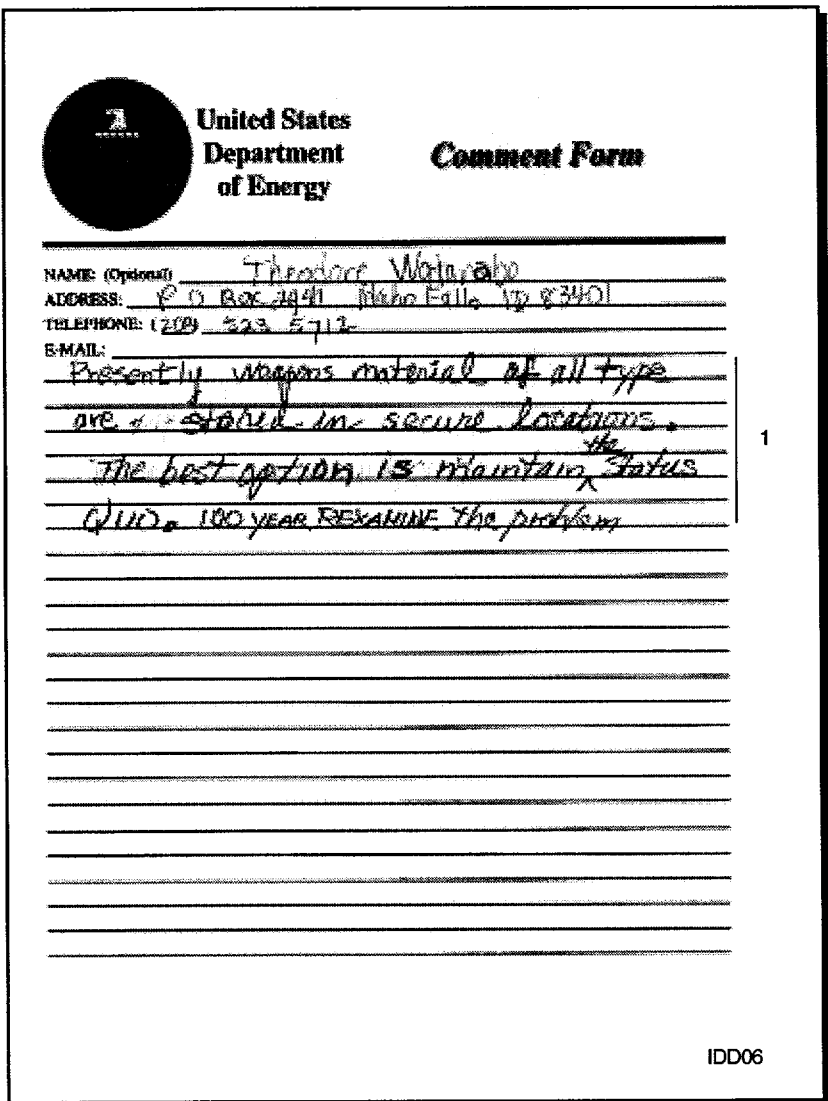 United States
Department
of Energy
Comment Form
NAME: (Optional) Theodore
ADDRESS: P O Box Idaho Falls ID 83401
TELEPHONE: (208) 523 5712
E-MAIL:
Presently weapons material of all type
are stored in secure locations.
The best option is maintain the Status
QUO. 100 YEAR REXAMINE The problem
1
IDD06